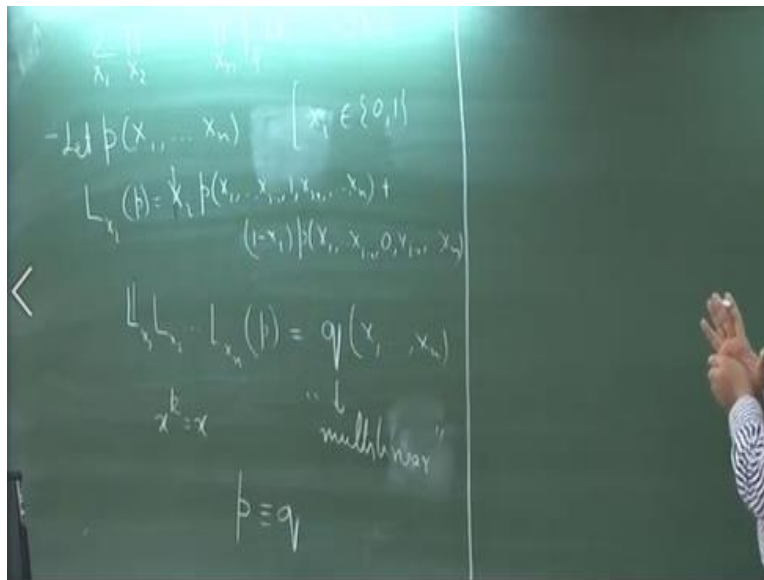 Σ Π
x₁ x₂ xₙ
- Let p(x₁, ... xₙ) [xᵢ ∈ {0,1}
L_{xᵢ}(p) = xᵢ p(x₁, ... xᵢ₋₁, 1, xᵢ₊₁, ... xₙ) +
(1-xᵢ) p(x₁, .. xᵢ₋₁, 0, xᵢ₊₁, .. xₙ)
L_{x₁} L_{x₂} ... L_{xₙ}(p) = q(x₁ .. , xₙ)
x^k = x " ↓
multilinear"
p ≡ q